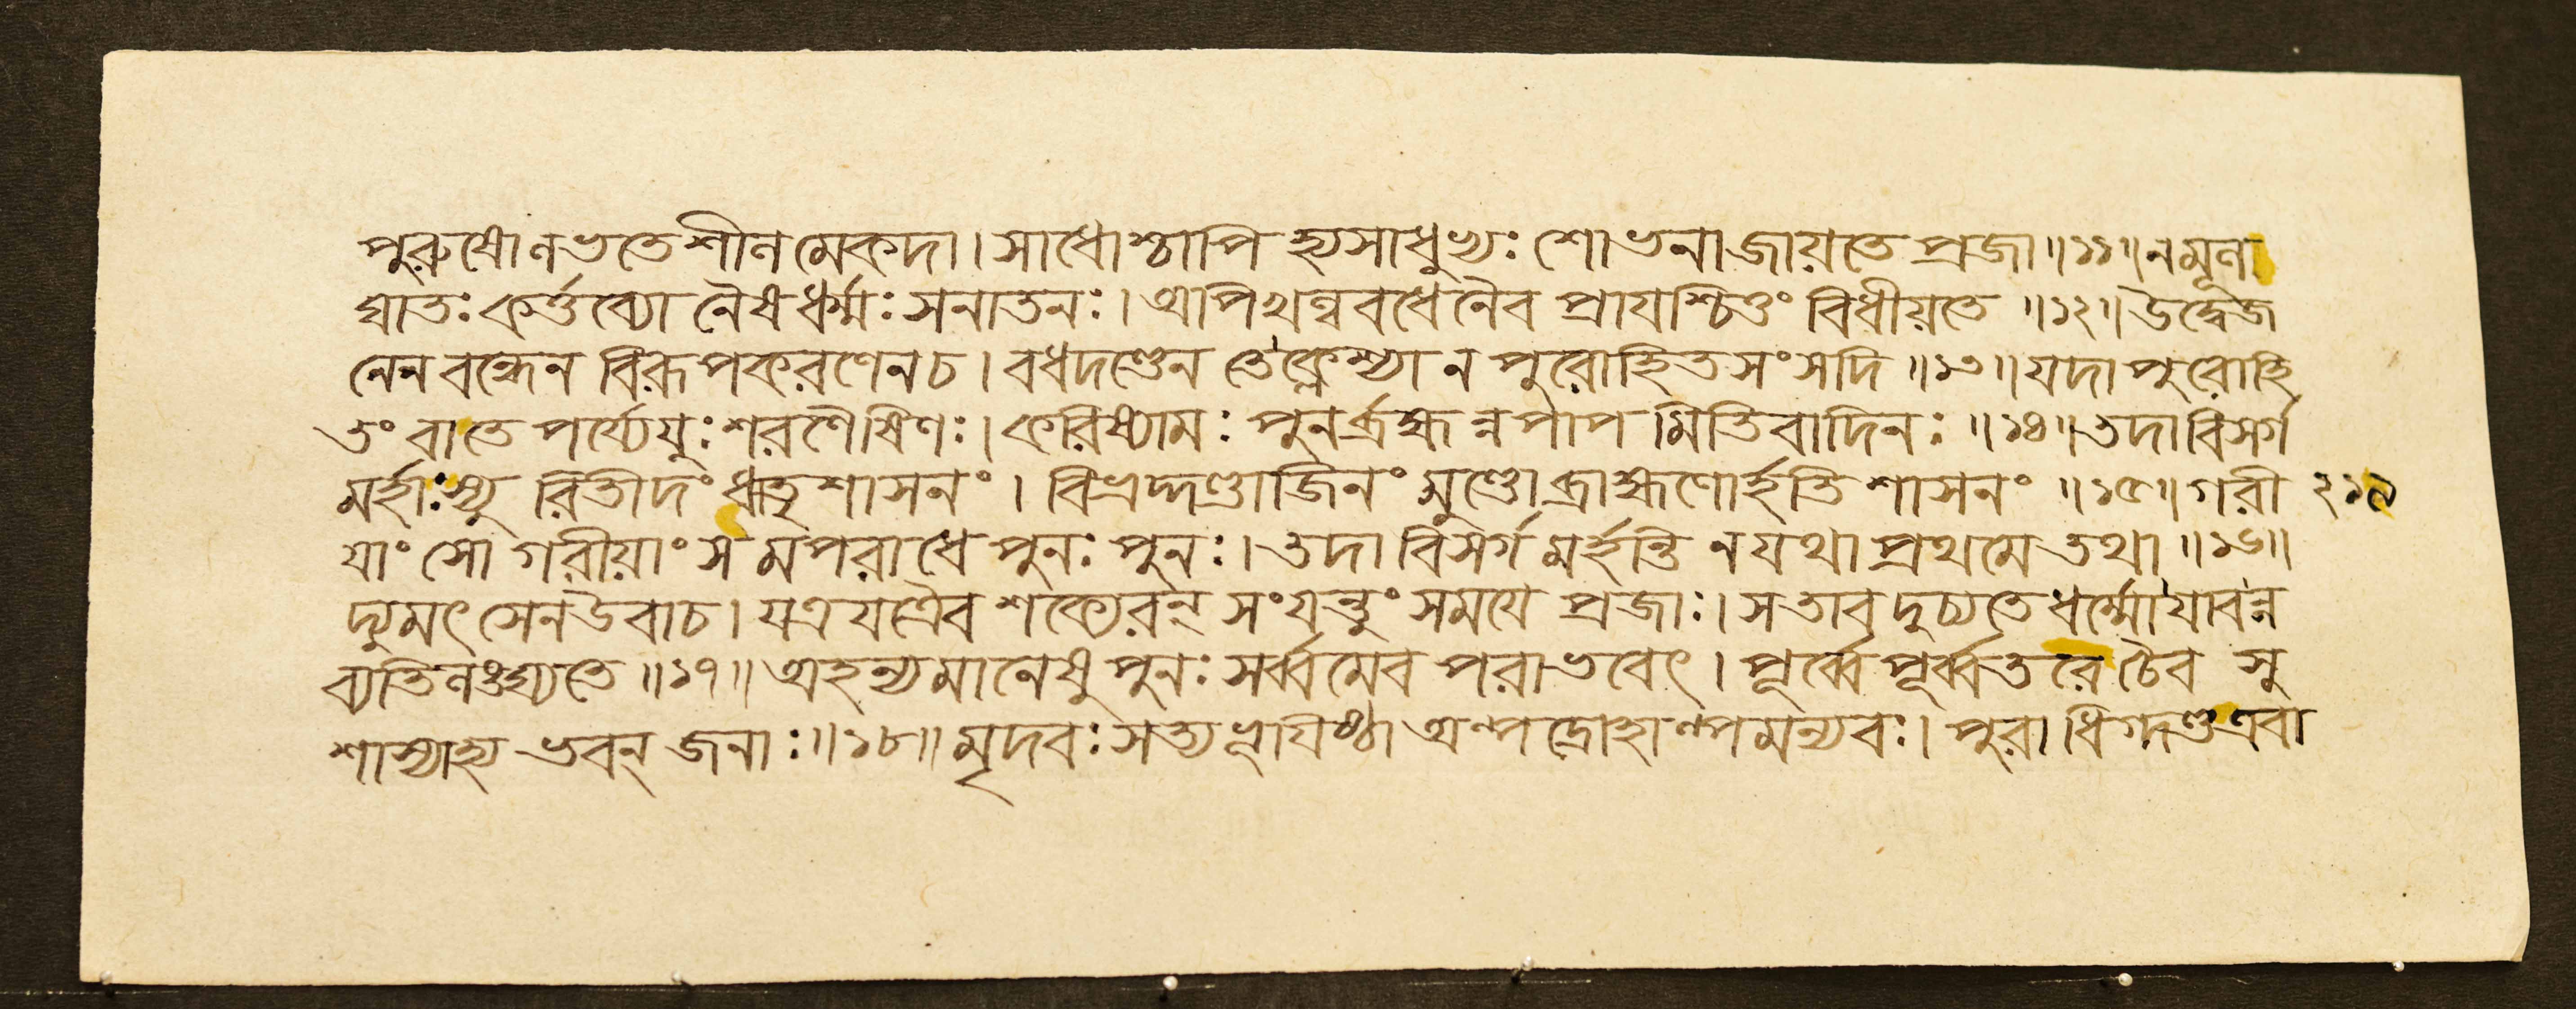 পুরুষোনভতেশীনমেকদা। সাধোশ্চাপি হ্যসাধুভ্যঃ শোভনাজায়তে প্রজা॥১১॥নমূন
ঘাতঃ কর্ত্তব্যো নৈষধর্ম্মঃ সনাতনঃ। অপিখন্ববধেনৈব প্রাযশ্চিত্তং বিধীয়তে ॥১২॥উদ্বেজ
নেনবন্ধেন বিরূপকরণেনচ। বধদণ্ডেন তেক্লেশ্যা ন পুরোহিতসংসদি ॥১৩॥যদা পুরোহি
তং বাতে পর্য্যেযুঃ শরণৈষিণঃ। করিষ্যামঃ পুনর্ব্রহ্মন্নপাপমিতিবাদিনঃ ॥১৪॥তদাবিসর্গ
মর্হাঃস্যু রিতীদং ধাতৃশাসনং। বিভ্রদ্দণ্ডাজিনং মুণ্ডোব্রাহ্মণোর্হতি শাসনং ॥১৫॥গরী ২১৯
যাং সো গরীয়াংসমপরাধে পুনঃ পুনঃ। তদা বিসর্গমর্হন্তি নযথা প্রথমে তথা ॥১৬॥
দ্যুমৎসেনউবাচ। যত্রযত্রৈব শক্যেরন্ সংযন্তুং সমযে প্রজাঃ। সতাবদুচ্যতেধর্ম্মোযাবন্ন
ব্যতিনঙ্ঘ্যতে ॥১৭॥ অহন্যমানেষু পুনঃ সর্ব্বমেব পরাভবেৎ। পূর্ব্বে পূর্ব্বতরে চৈব সু
শাস্যাহ্য ভবন্ জনাঃ॥১৮॥মৃদবঃ সত্যভূযিষ্ঠা অল্পদ্রোহাল্পমন্যবঃ। পুরা ধিগ্দণ্ডএবা